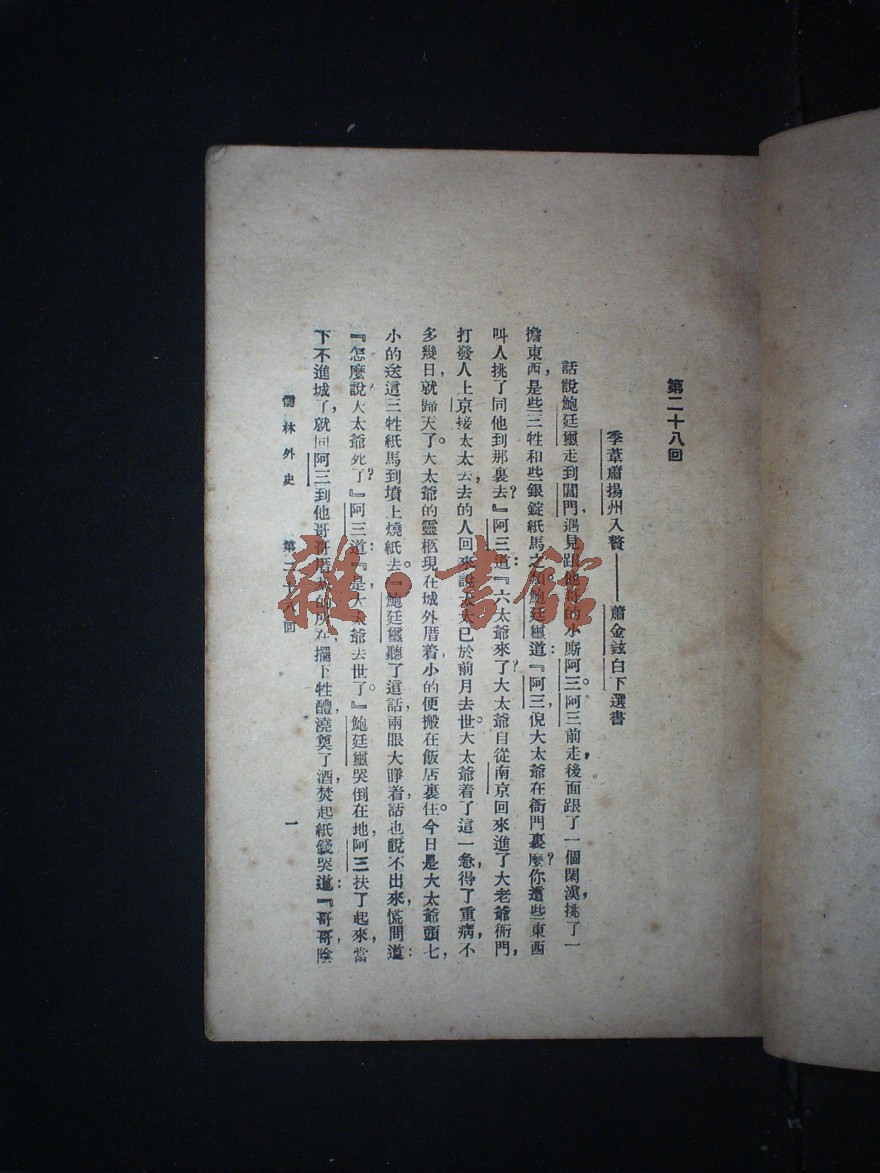 第二十八回
季葦蕭揚州入贅——蕭金鉉白下選書
話說鮑廷璽走到閶門，遇見跟他哥的小廝阿三。阿三前走，後面跟了一個閑漢，挑了一
擔東西，是些三牲和些銀錠紙馬之類。鮑廷璽道：『阿三，倪大太爺在衙門裏麼？你這些東西
叫人挑了同他到那裏去？』阿三道：『六太爺來了？大太爺自從南京回來，進了大老爺衙門，
打發人上京接太太去，去的人回來說，太太已於前月去世。大太爺着了這一急，得了重病，不
多幾日，就歸天了。大太爺的靈柩現在城外厝着，小的便搬在飯店裏住。今日是大太爺頭七，
小的送這三牲紙馬到墳上燒紙去。』鮑廷璽聽了這話，兩眼大睜着，話也說不出來，慌問道：
『怎麼說？大太爺死了？』阿三道：『是，大太爺去世了。』鮑廷璽哭倒在地，阿三扶了起來。當
下不進城了，就同阿三到他哥哥厝的所在，擺下牲醴，澆奠了酒，焚起紙錢，哭道：『哥哥陰
儒林外史　第二十八回　一
雜·書館